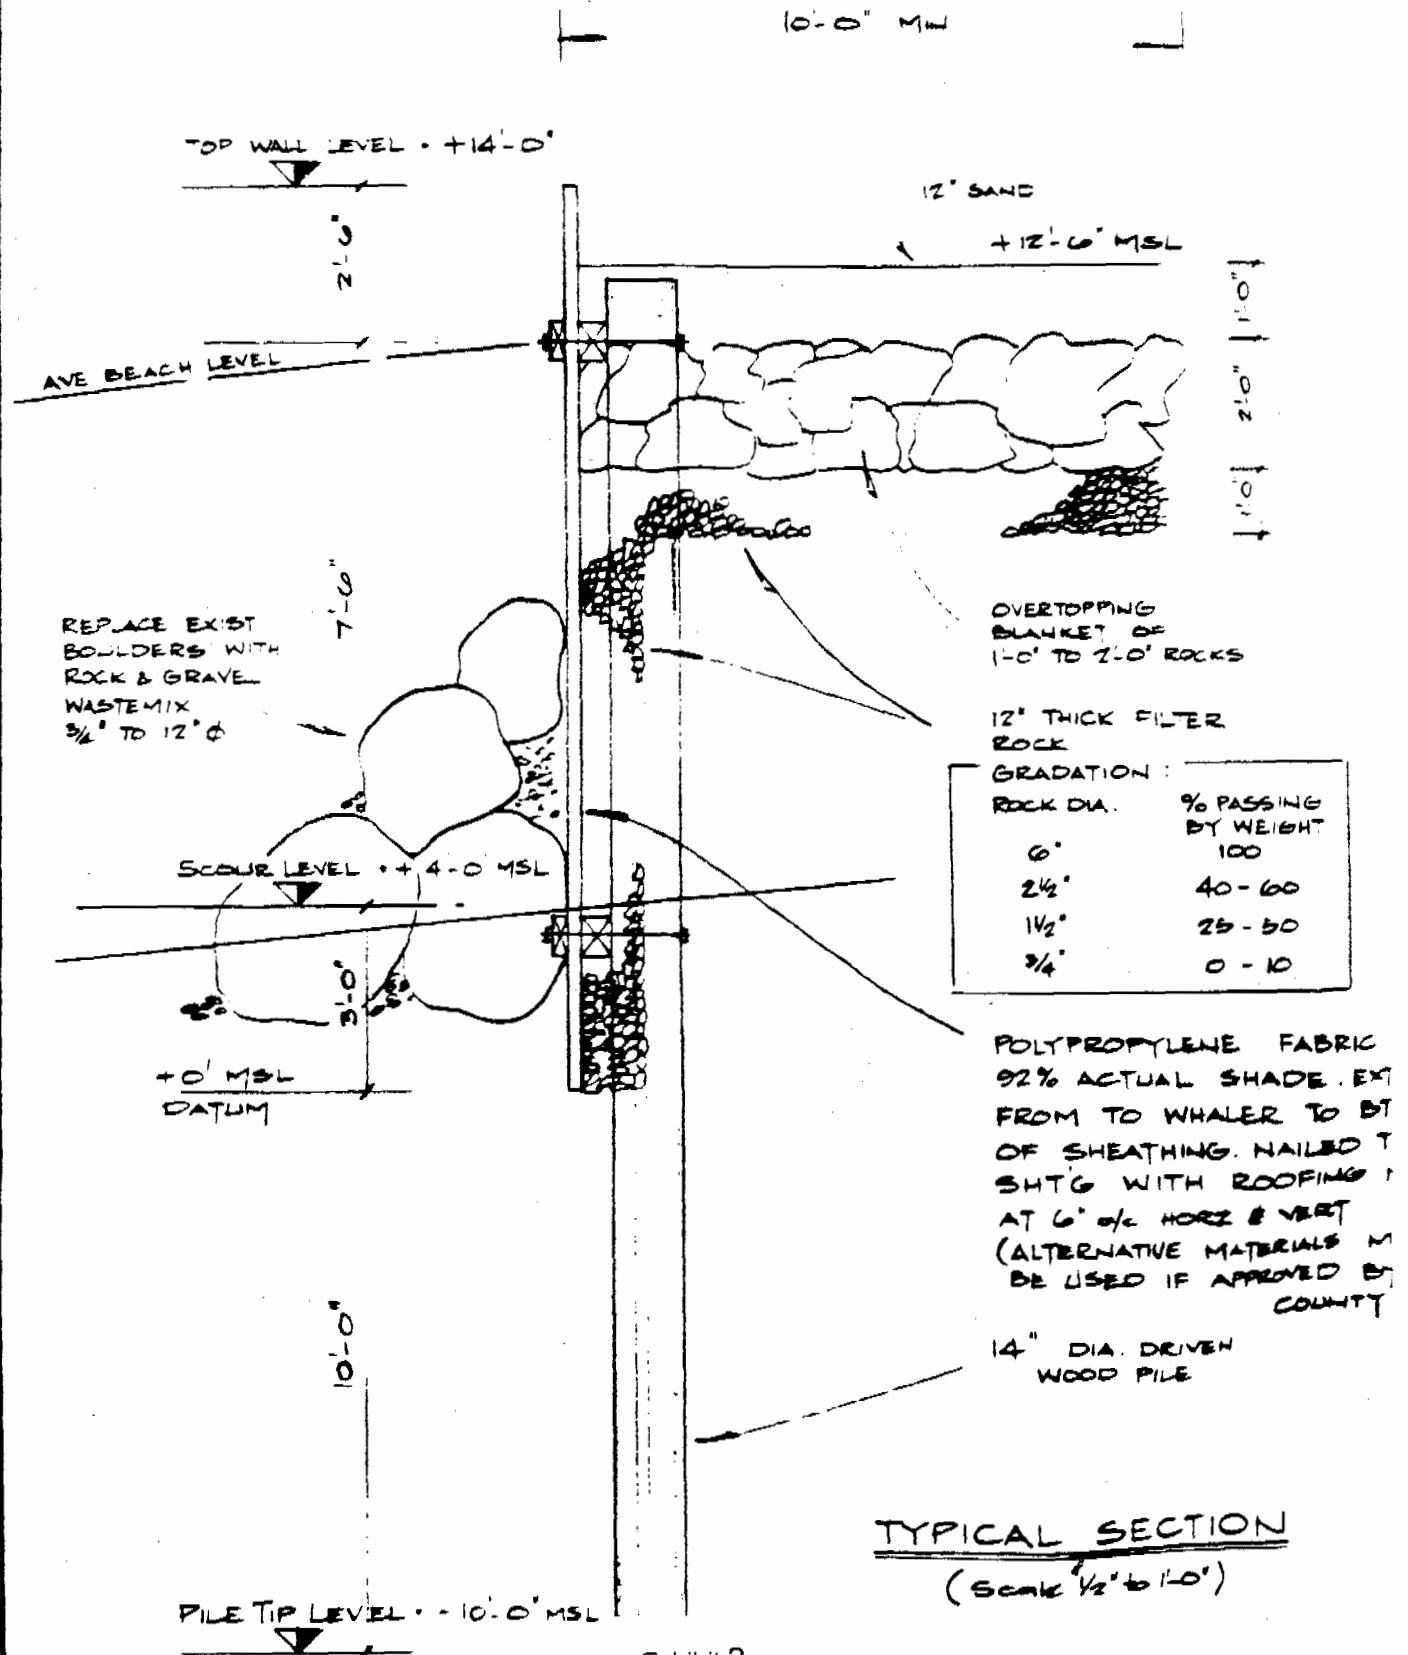 10'-0" MIN
TOP WALL LEVEL • +14'-0"
12" SAND
+12'-6" MSL
2'-6"
1'-0"
AVE BEACH LEVEL
2'-0"
1'-0"
7'-6"
REPLACE EXIST
BOULDERS WITH
ROCK & GRAVEL
WASTEMIX
3/4" TO 12" ϕ
OVERTOPPING
BLANKET OF
1'-0" TO 2'-0" ROCKS
12" THICK FILTER
ROCK
GRADATION :
ROCK DIA. % PASSING
BY WEIGHT
6" 100
2 1/2" 40 - 60
1 1/2" 25 - 50
3/4" 0 - 10
SCOUR LEVEL • + 4'-0 MSL
3'-0"
+0' MSL
DATUM
POLYPROPYLENE FABRIC
92% ACTUAL SHADE. EXT
FROM TO WHALER TO BT
OF SHEATHING. NAILED T
SHT'G WITH ROOFING
AT 6" o/c HORZ & VERT
(ALTERNATIVE MATERIALS M
BE USED IF APPROVED BY
COUNTY
10'-0"
14" DIA. DRIVEN
WOOD PILE
TYPICAL SECTION
(Scale 1/2" to 1'-0")
PILE TIP LEVEL • -10'-0" MSL